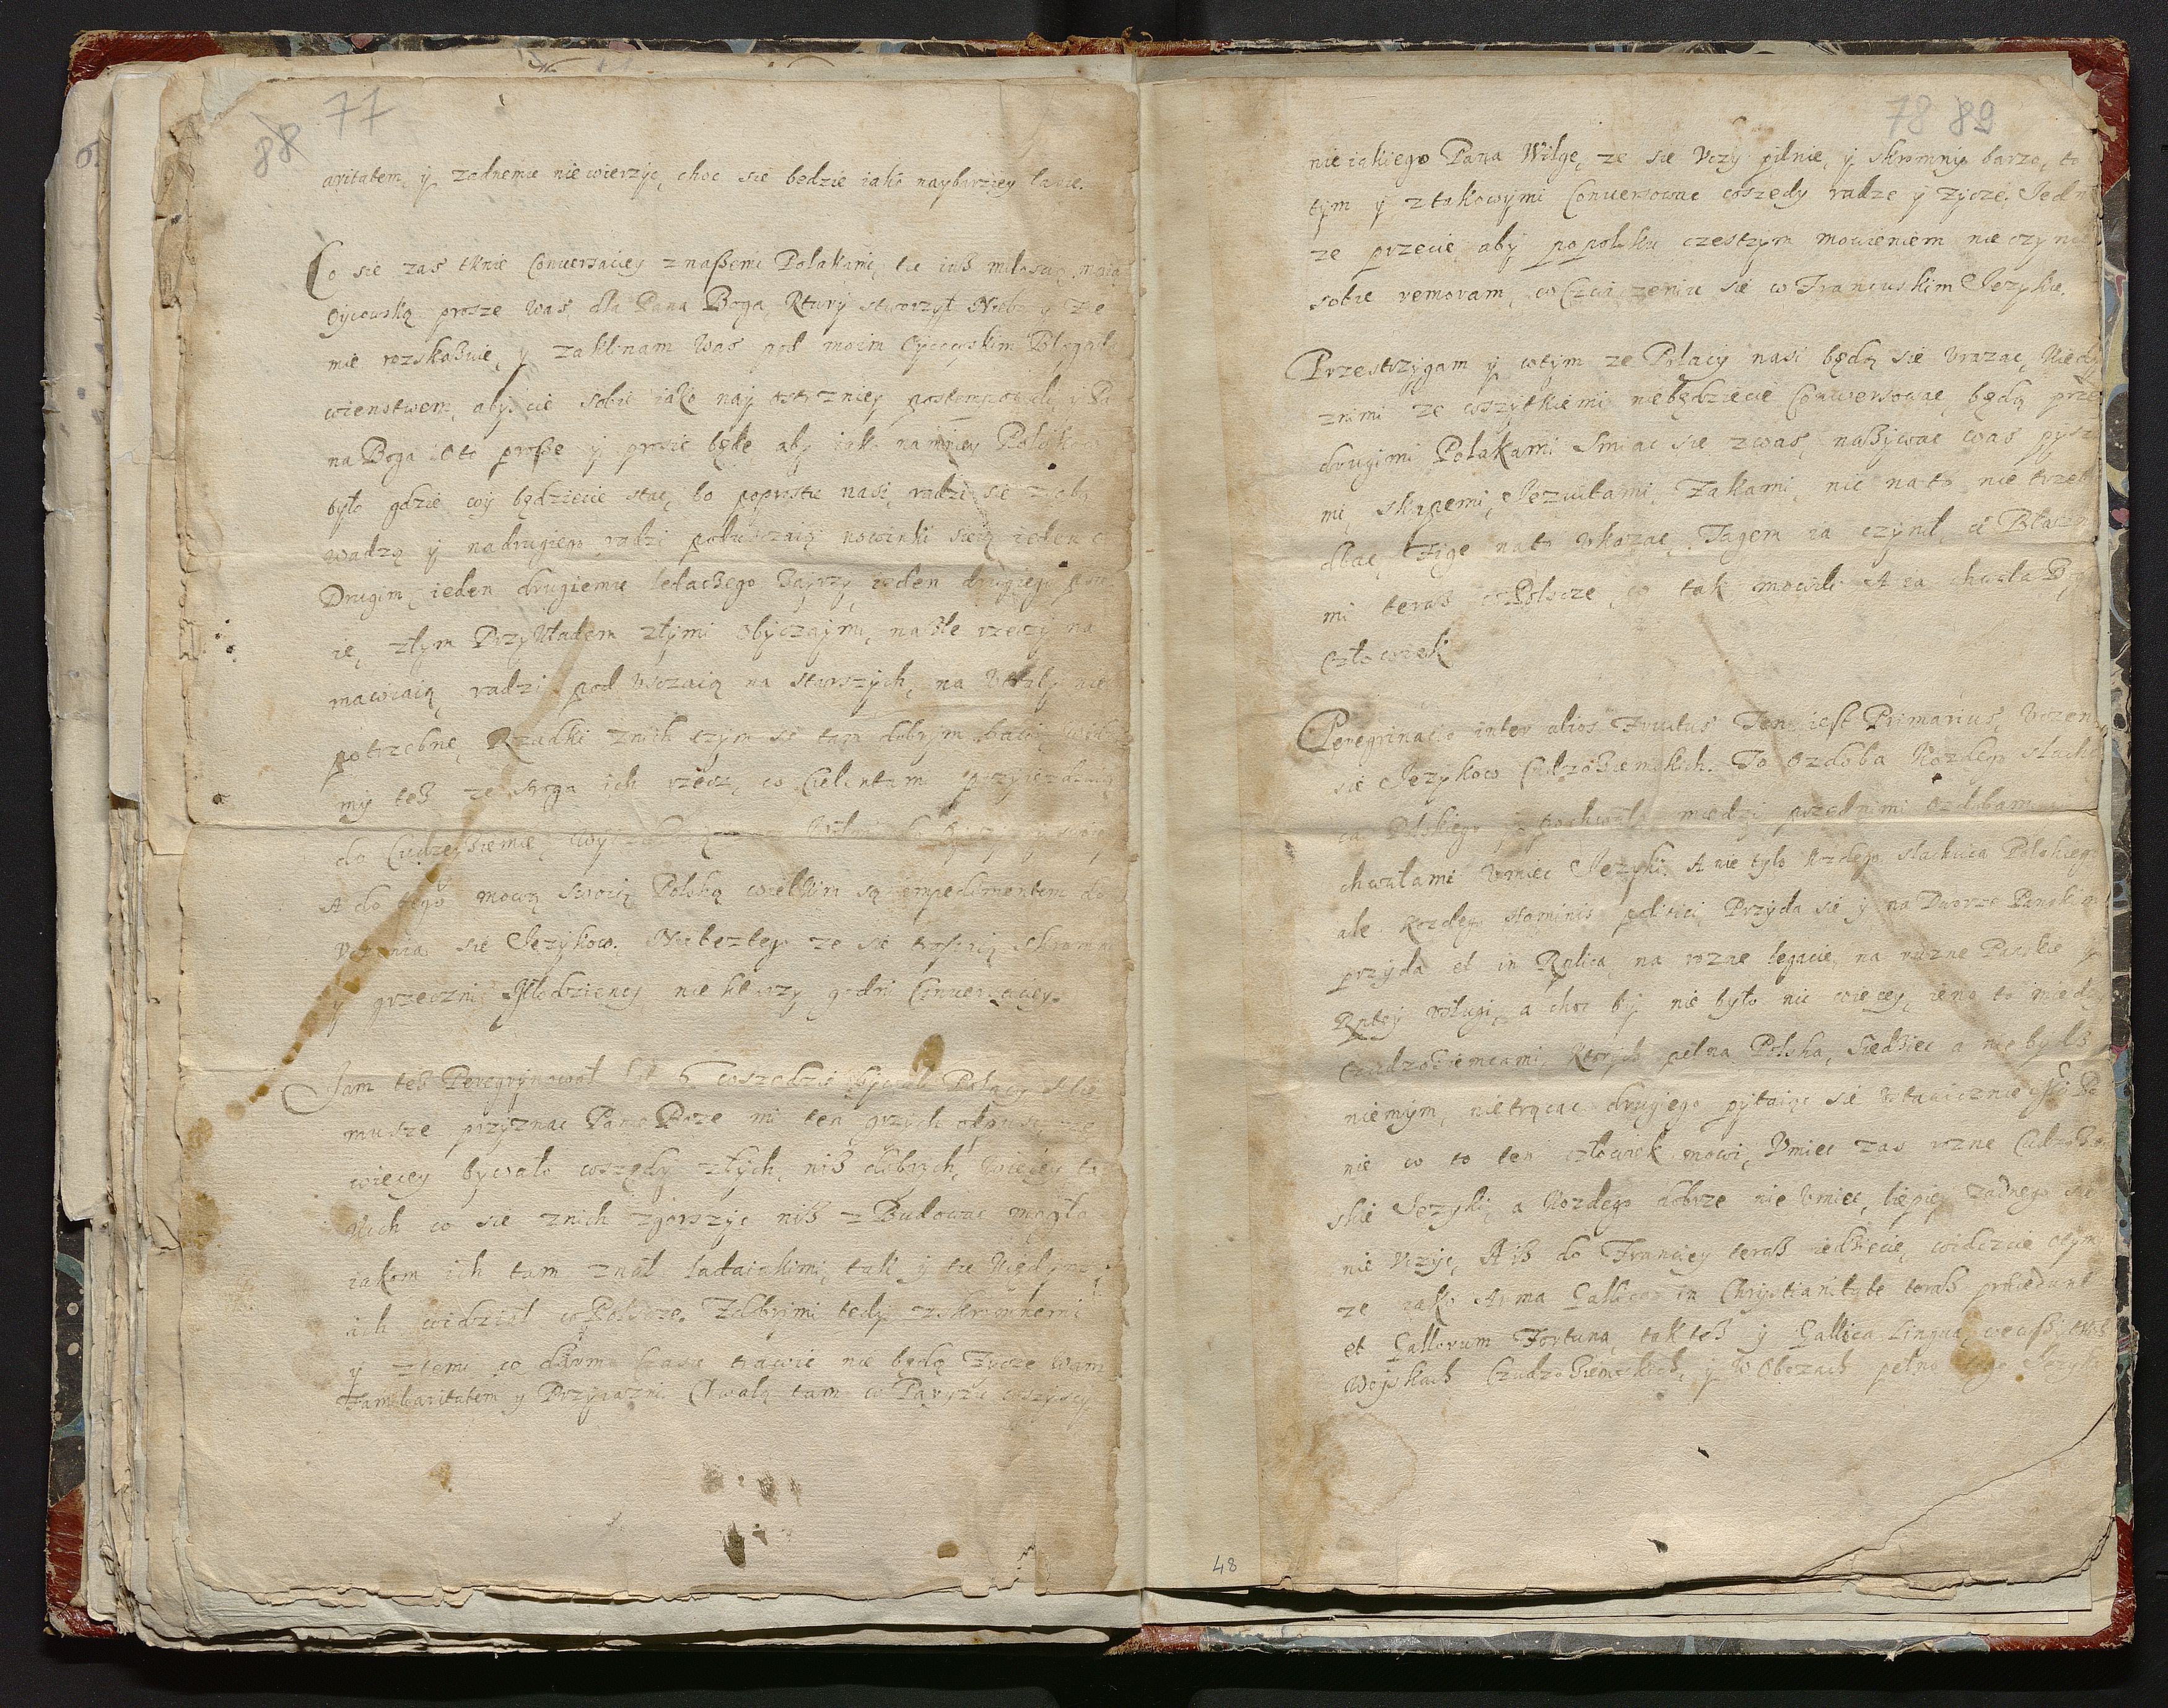 77
88
aritatem, y zadnemu nie wierzyc, choc sie będzie iako naybarziey łasic.
Co sie zas tknie Conversaciey z naßemi Polakami, tu iuß miłoscią moią
Oycowską prosze was, dla Pana Boga Ktury stworzył Niebo y Zie
mie rozskaßuie, y zaklinam was pod moim Oycowskim Błogosła
wienstwem, abyscie sobie iako nay ostrozniey postempowali, y Pa
na Boga o to proße y prosic będe aby iak namniey Polakow
było gdzie wy będziecie stac, bo poprostu nasi radzi sie z sobą
wadzą y na drugiego radzi poduszczaią nowinki sieią ieden o
Drugim, ieden drugiemu ledaczego Zayrzy, ieden drugiego psu
ie, złym Przykładem złymi obyczaymi, na złe rzeczy na
mawiaią, radzi pod usczaią na starszych, na Utraty nie
potrzebne, Rzadki z nich czym sie tam dobrym bawi, widzie
my teß ze sroga ich rzecz, co Cielentami przyiezdzaią
do Cudzey Ziemie, wy
A do tego mową swoią Polską wielkim są impedimentem do
Uczenia sie Jezykow. Nie bez tego ze sie trafiaią skromni
y grzeczni Młodziency niektorzy godni Conversaciey.
Jam teß Peregrynował lat 6 woszędzie bywali Polacy, Ale
musze przyznac Panie Boze mi ten grzech odpusc, ze
wiecey bywało wszędy złych, niß dobrych, Wiecey ta
kich co sie z nich zgorszyc niß z Budowac mogło
iakom ich tam znał ladaiakimi, tak y tu Kiedym
ich widział w Polscze. Z dobrymi tedy z skromnemi
y z temi co darmo czasu trawic nie będą Zycze wam
Familiaritatem y Przyiazni. Chwalą tam w Paryzu wszyscy
78 89
nieiakiego Pana Wilgę, ze sie Uczy pilnie, y skromny barzo, to
tym y z takowymi Conversowac wszędy radze y zycze. Jedn
ze przecie aby po polsku czestym mowieniem nie czyni
sobie remoram, w Cwiczeniu sie w Francuskim Jezyku.
Przestrzygam y w tym ze Polacy nasi będą sie Urazac, Kiedy
z nimi ze wszytkiemi nie będziecie Conversowac, będą prze
drugimi Polakami Smiac sie z was, naßywac was pysz
mi, skąpemi, Jezuitami, Zakami, nic na to nie trzeb
dbac, Figę na to Ukazac. Tagem ia czynił, a Błazn
mi teraß w Polscze, co tak mowili A ia chwała Bog
Człowiek
Peregrinacio inter alios Fructus Ten iest Primarius, Uczen
sie Jezykow Cudzoßiemskich. To Ozdoba Kozdego slach
ca Polskiego y pochwała miedzy przednimi Ozdobami
chwałami Umiec Jezyki. A nie tylo Kozdego slachcica Polskieg
ale kozdego Hominis politici Przyda sie y na Dworze Panskim
przyda et in Rplica, na rozne legacie na rozne Panskie y
Rptey usługi, a choc by nie było nic wiecey, ieno to miedzy
Cudzoßiemcami, Ktorych pełna Polska, Siedßiec a nie bydß
niemym, nie trącac drugiego pytaiąc sie Ustawicznie Mci Pa
nie co to ten człowiek mowi, Umiec zas rozne Cudzoßiem
skie Jezyki, a Kozdego dobrze nie Umiec, liepiey zadnego sie
nie Uczyc, A iß do Franciey teraß iedßiecie, widczcie o tym
ze iako Arma Gallica in Christianitate teraß praecedunt
et Gallorum Fortuna, tak teß y Gallica Lingua, we wßytkich
Woyskach Cudzoßiemskich, y W Obozach pełno tego Jezyka
48